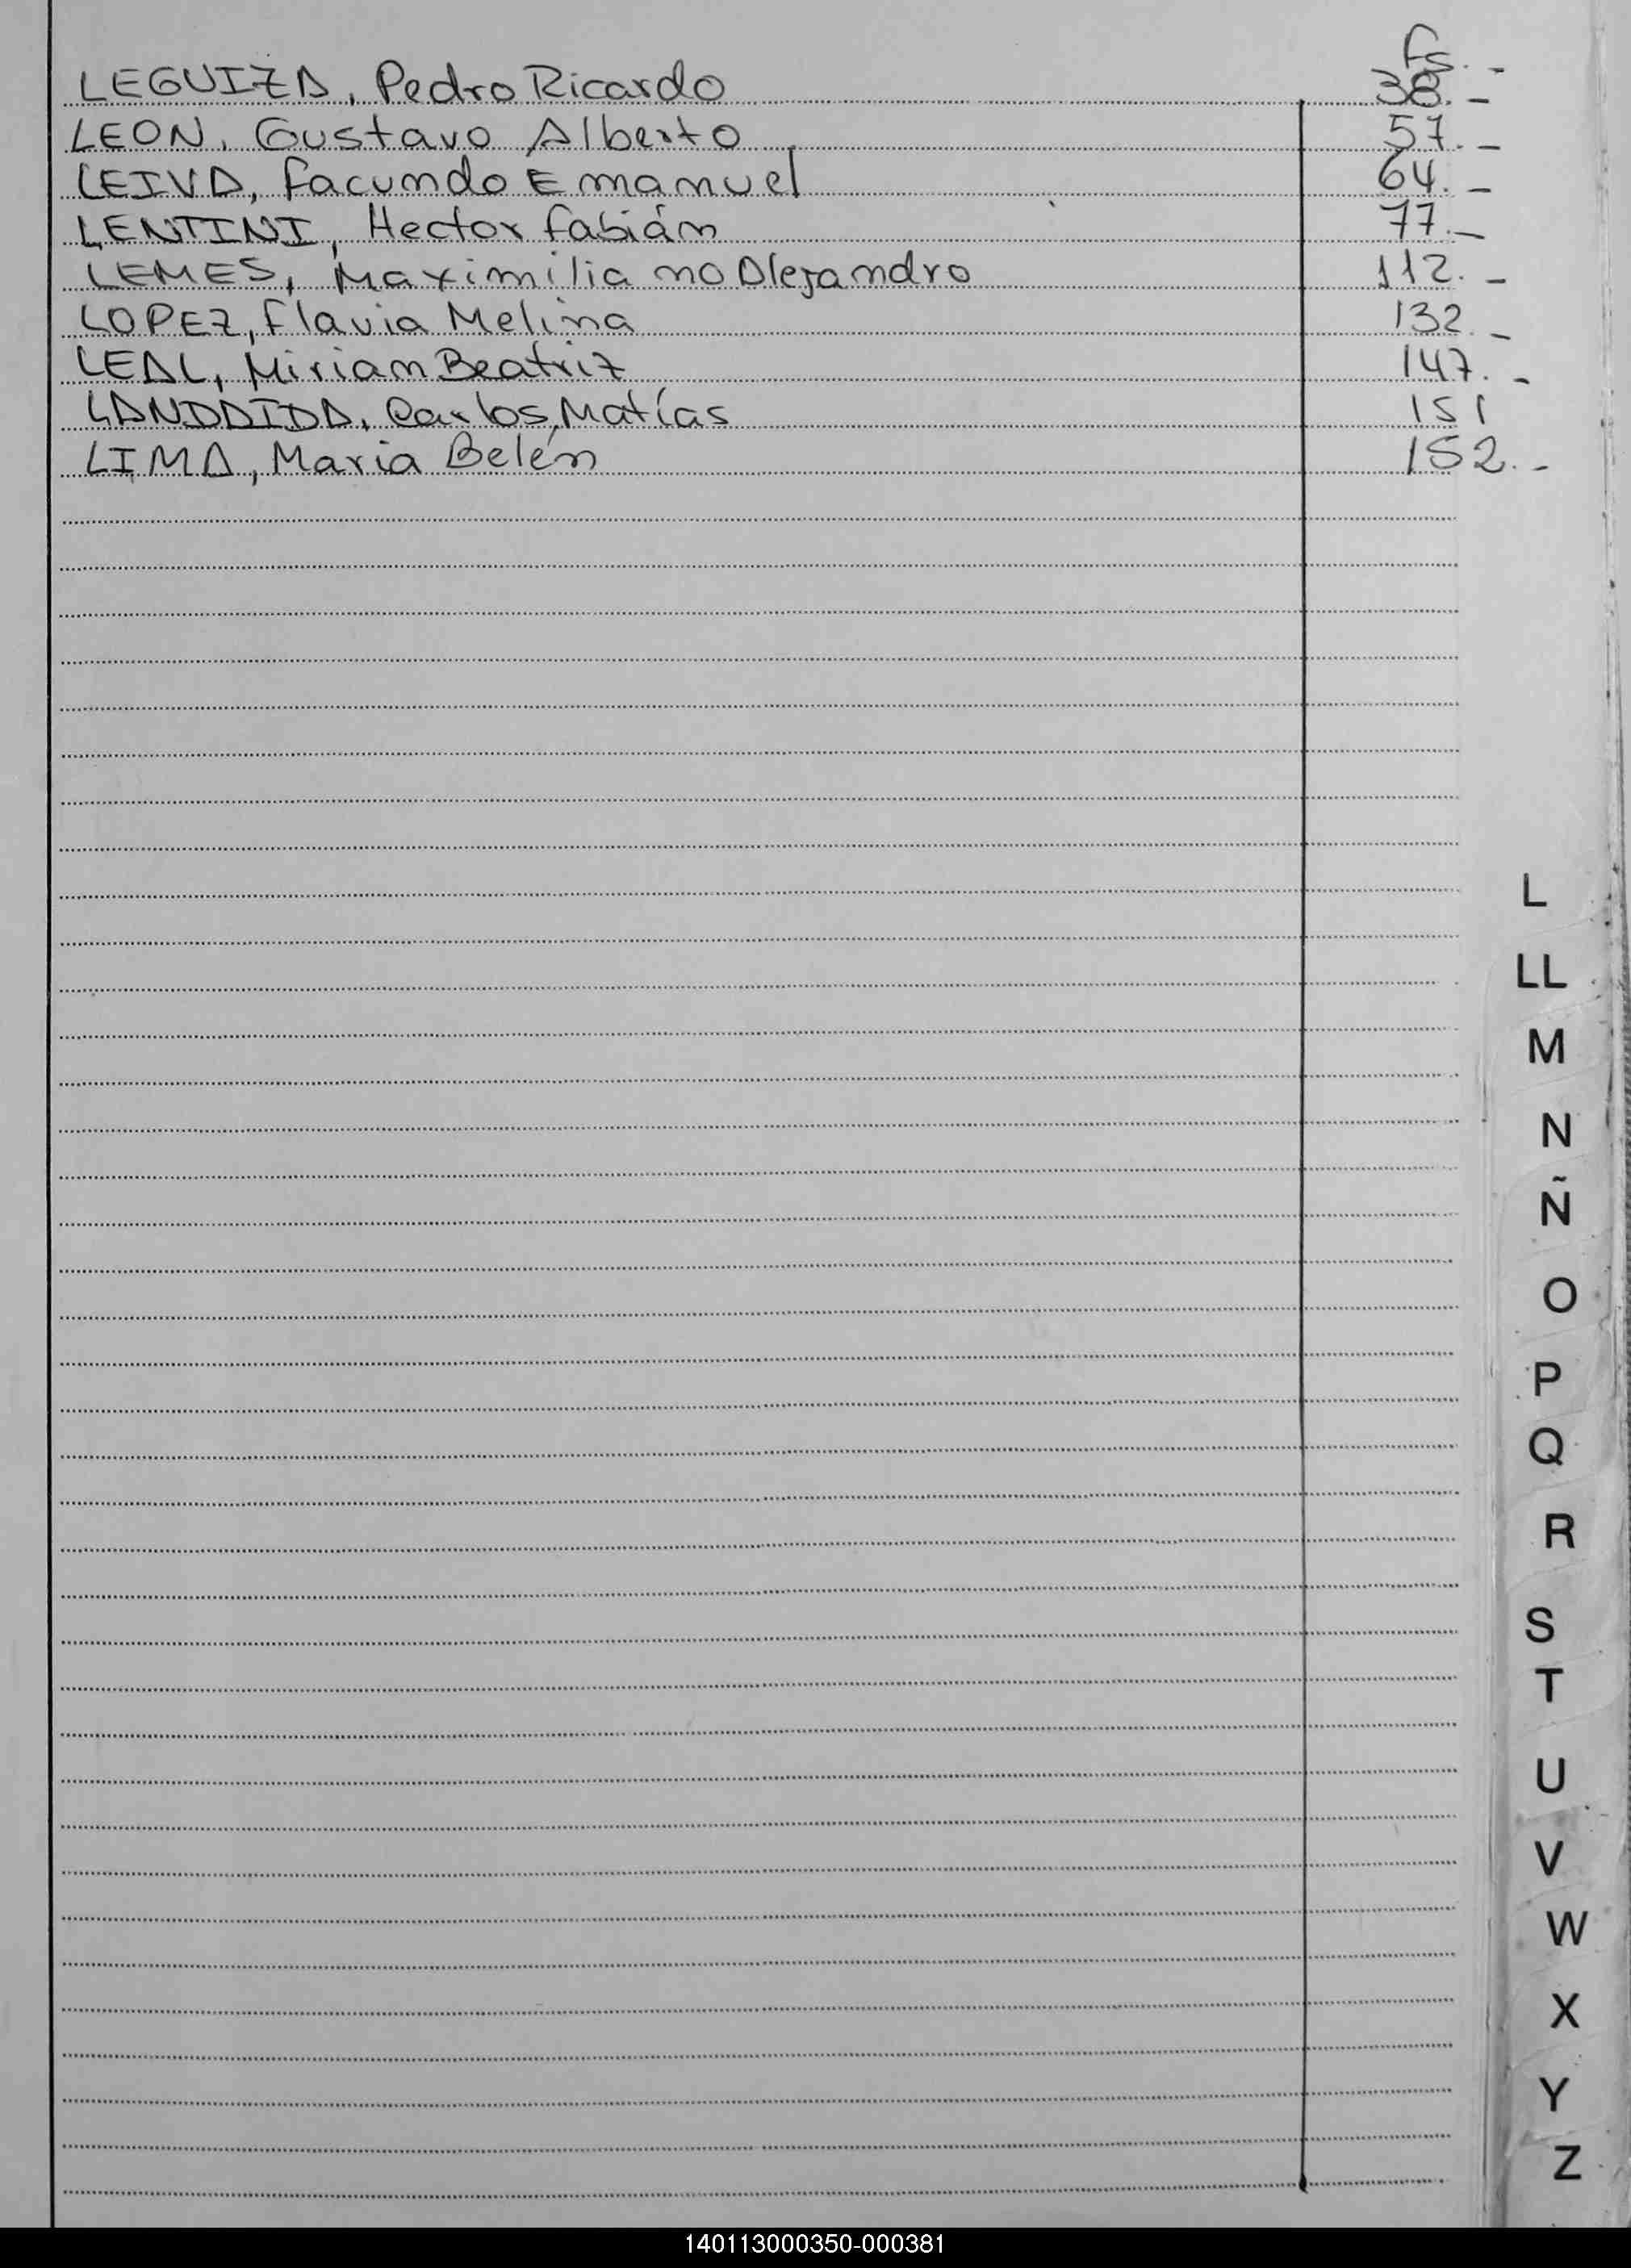 Fs. -
LEGUIZA, Pedro Ricardo 38. -
LEON, Gustavo Alberto 57. -
LEIVA, Facundo Emanuel 64. -
LENTINI, Hector Fabián 77. -
LEMES, Maximiliano Alejandro 112. -
LOPEZ, Flavia Melina 132. -
LEAL, Miriam Beatriz 147. -
LANDAIDA, Carlos Matías 151
LIMA, Maria Belén 152. -
L
LL
M
N
Ñ
O
P
Q
R
S
T
U
V
W
X
Y
Z
140113000350-000381